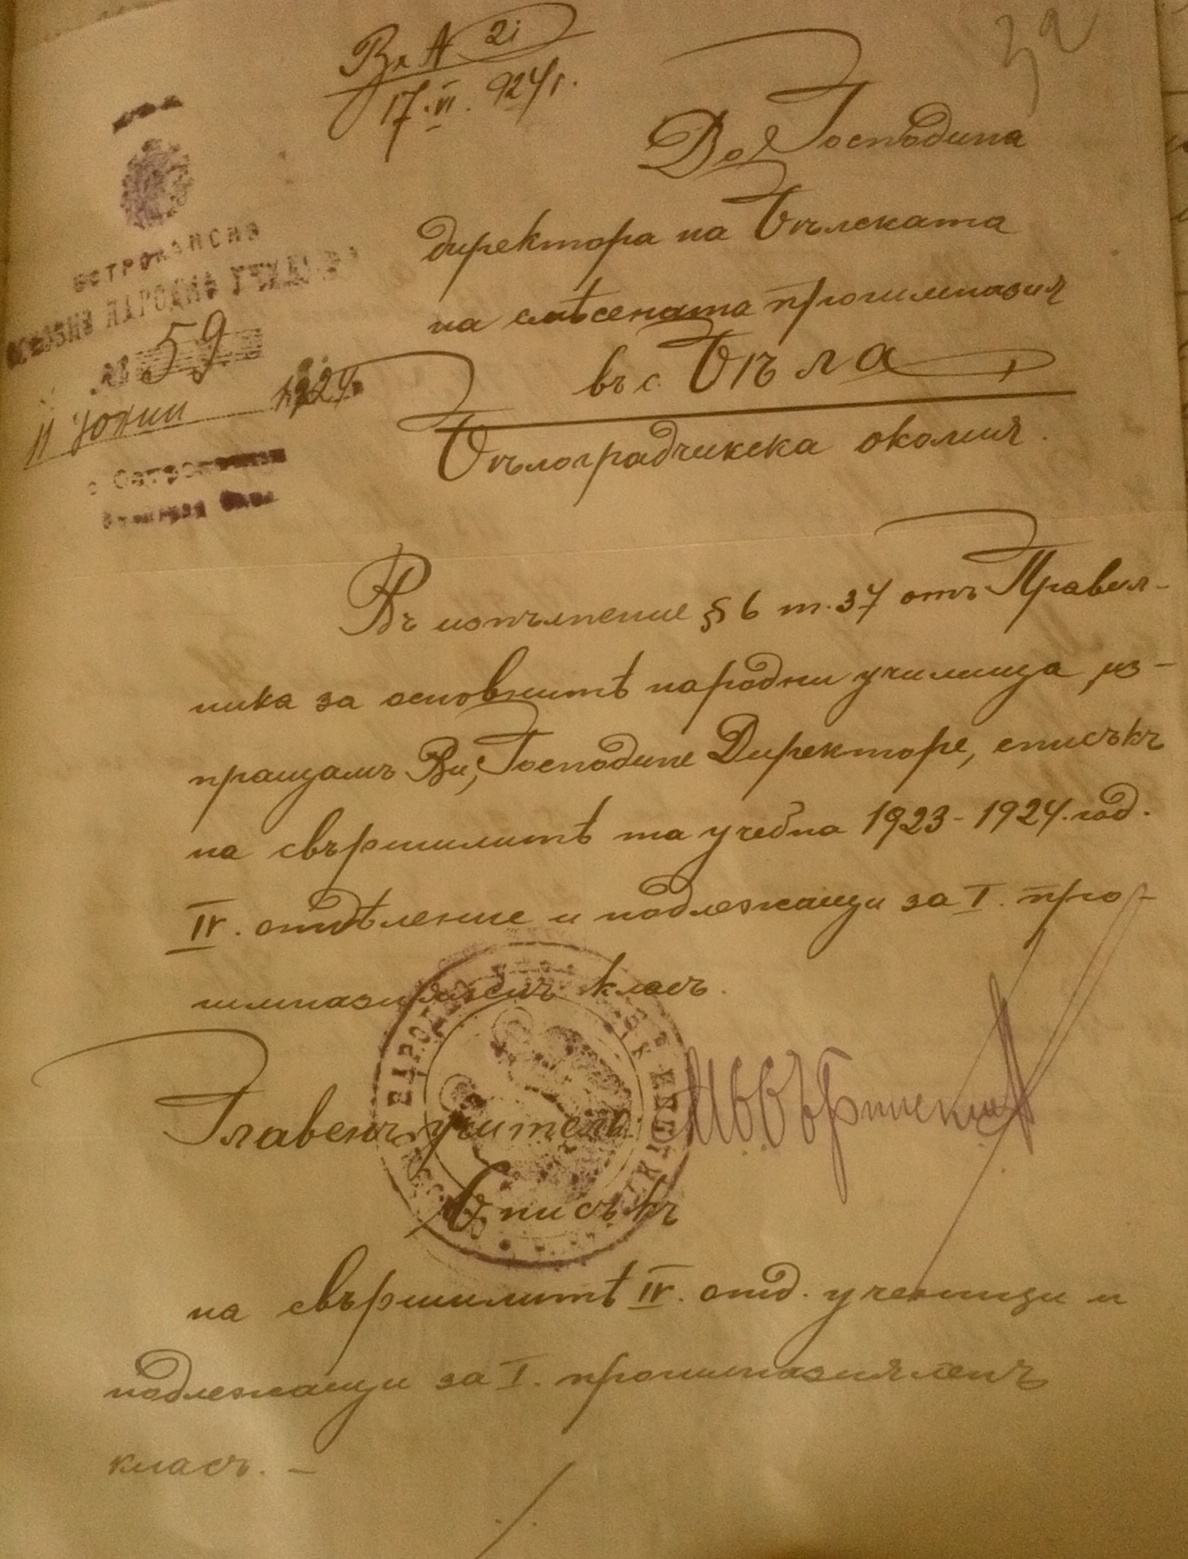 Вх № 21
17.VI.924 г.
32
До Господина
директора на Бѣлската
на смѣсената прогимназия
въ с. Бѣла
Бѣлоградчикска околия.
ОСТРОКАПСКО
ОСНОВНО НАРОДНО УЧИЛИЩЕ
№ 59
11 Юний 1924
с. Острокапци
Въ изпълнение § 6 т. 37 отъ Правил-
ника за основнитѣ народни училища, из-
пращамъ Ви, Господине Директоре, списъкъ
на свършилитѣ та учебна 1923-1924 год.
IV. отдѣление и подлежащи за I. про-
гимназияленъ класъ.
Главенъ учитель
Списъкъ
на свършилитѣ IV. отд. ученици и
подлежащи за I. прогимназияленъ
класъ. —